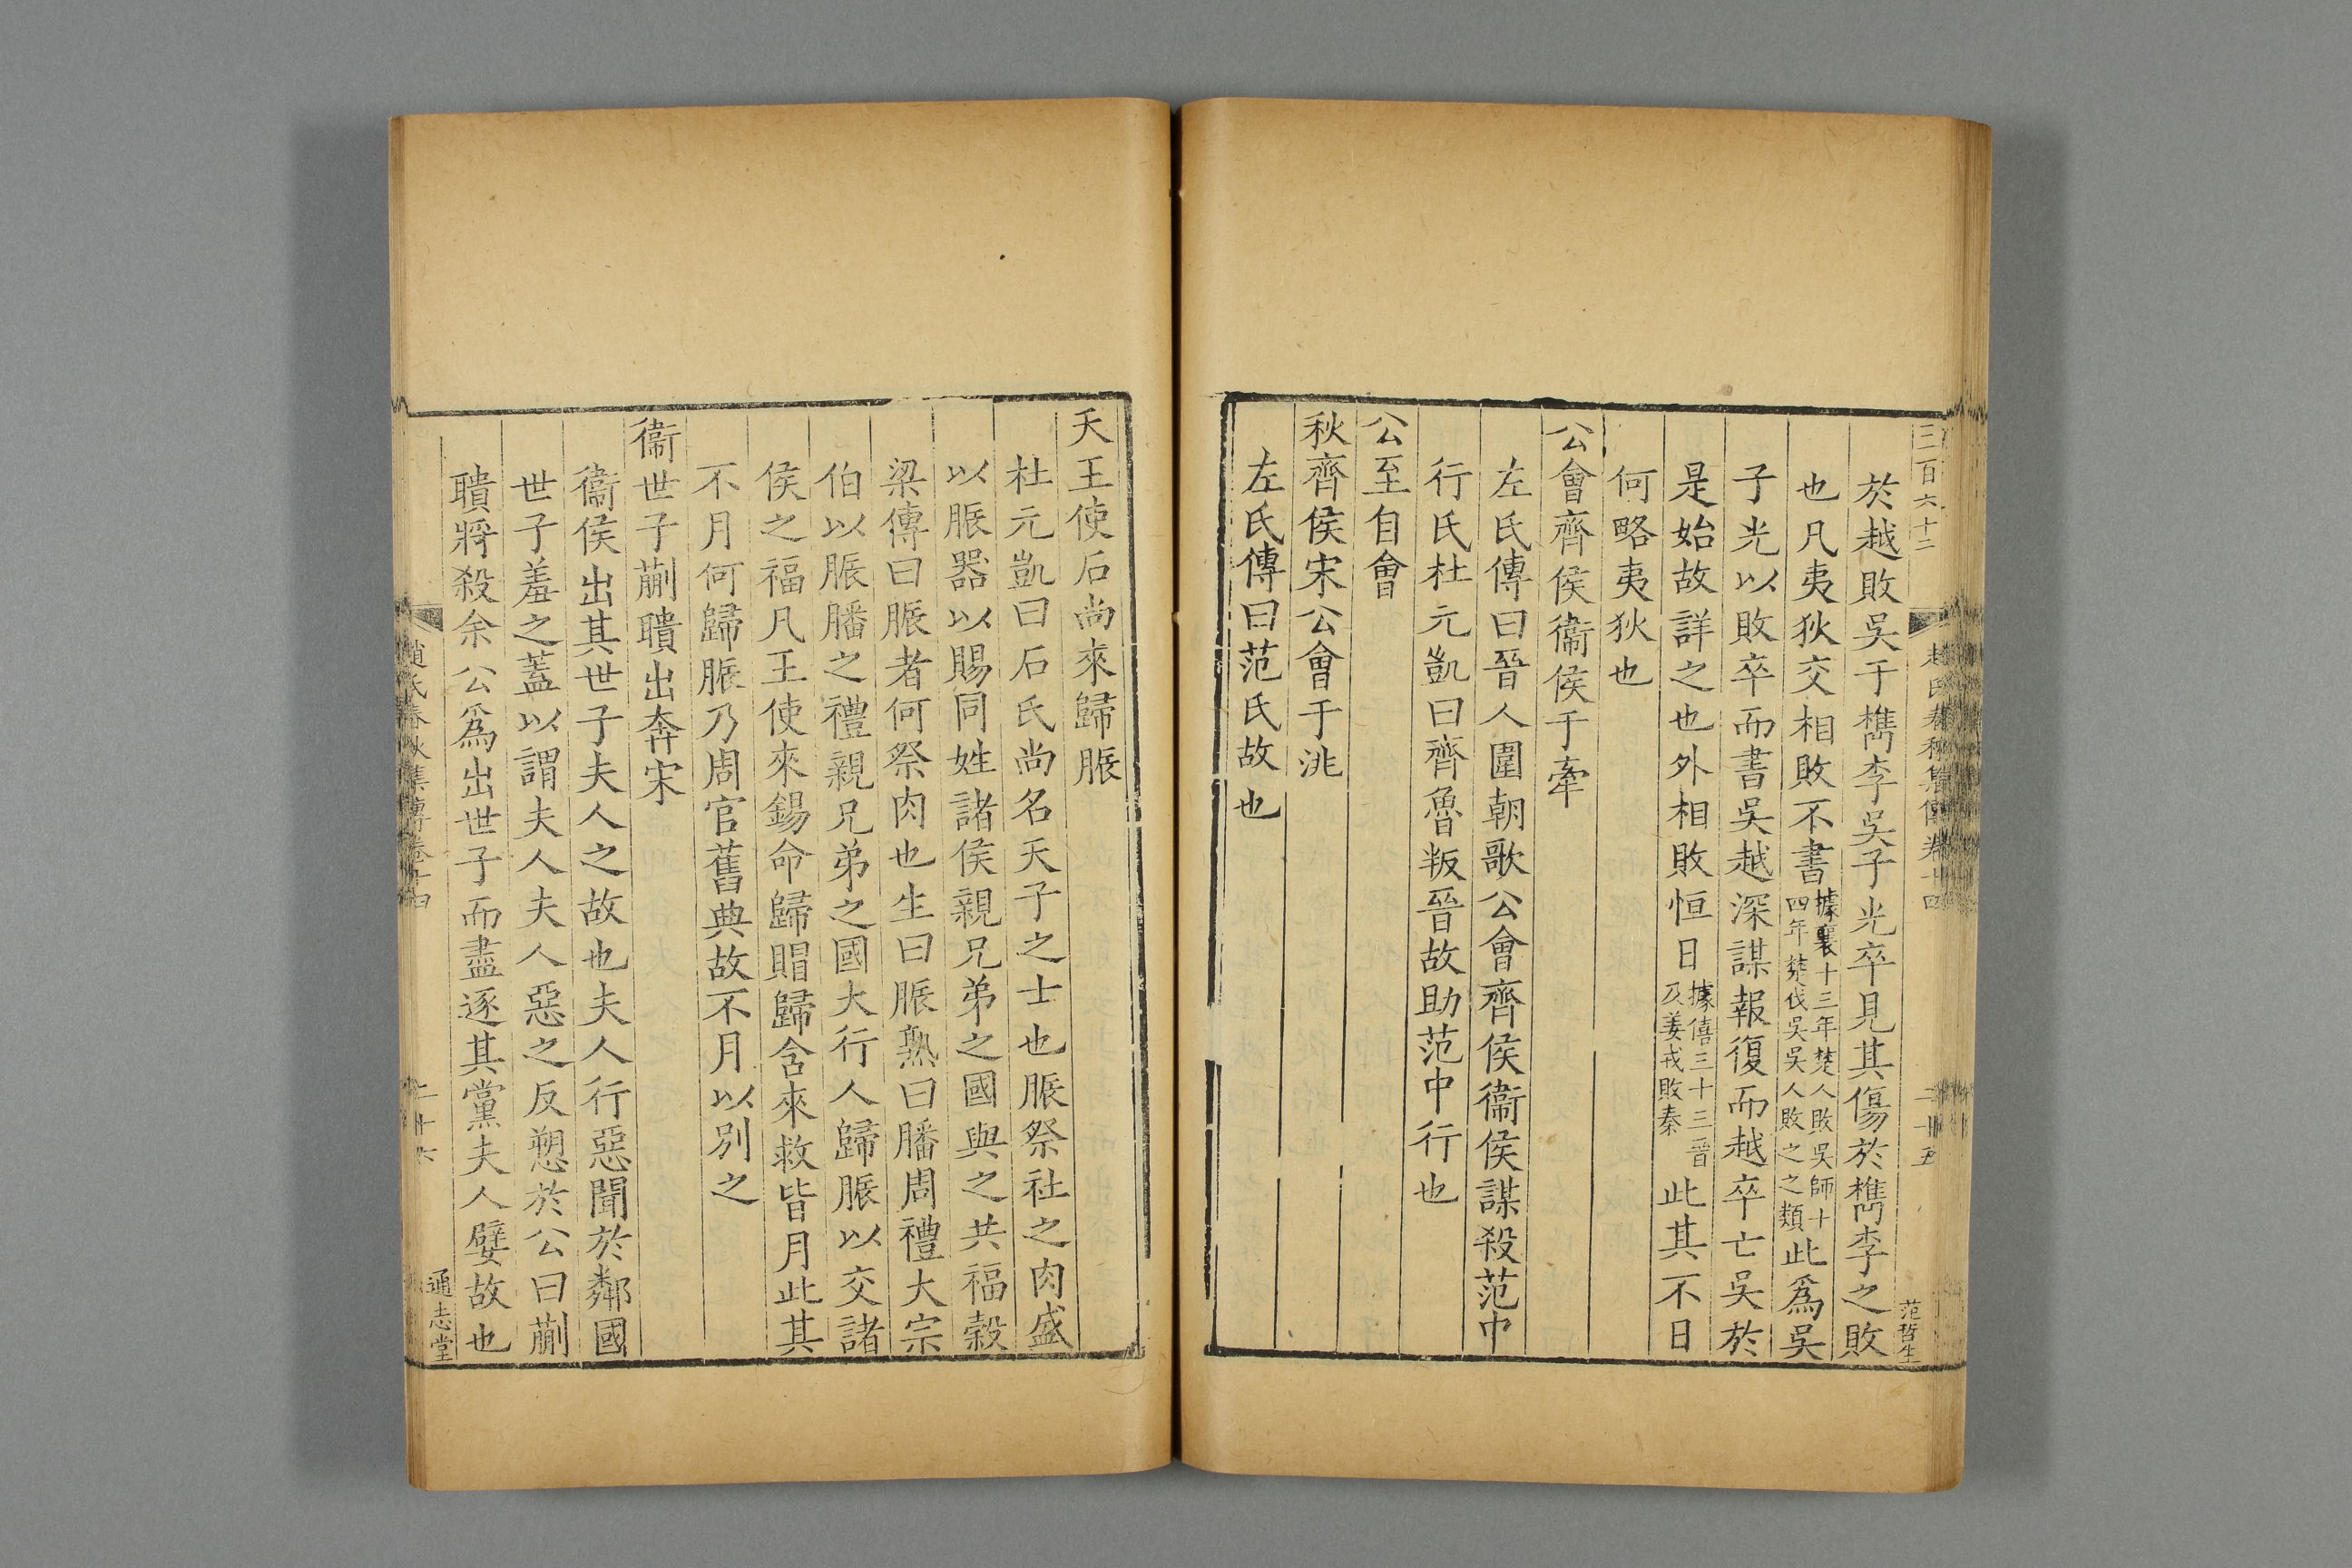 三百六十二
趙氏春秋集傳卷十四
二十五
范哲生
於越敗吳于檇李吳子光卒見其傷於檇李之敗
也凡夷狄交相敗不書據襄十三年楚人敗吳師十四年楚伐吳吳人敗之之類此爲吳
子光以敗卒而書吳越深謀報復而越卒亡吳於
是始故詳之也外相敗恒日據僖三十三晉及姜戎敗秦此其不日
何略夷狄也
公會齊侯衞侯于牽
左氏傳曰晉人圍朝歌公會齊侯衞侯謀殺范中
行氏杜元凱曰齊魯叛晉故助范中行也
公至自會
秋齊侯宋公會于洮
左氏傳曰范氏故也
天王使石尚來歸脤
杜元凱曰石氏尚名天子之士也脤祭社之肉盛
以脤器以賜同姓諸侯親兄弟之國與之共福穀
梁傳曰脤者何祭肉也生曰脤熟曰膰周禮大宗
伯以脤膰之禮親兄弟之國大行人歸脤以交諸
侯之福凡王使來錫命歸賵歸含來救皆月此其
不月何歸脤乃周官舊典故不月以別之
衞世子蒯聵出奔宋
衞侯出其世子夫人之故也夫人行惡聞於鄰國
世子羞之蓋以謂夫人夫人惡之反愬於公曰蒯
聵將殺余公爲出世子而盡逐其黨夫人嬖故也
趙氏春秋集傳卷十四
二十六
通志堂